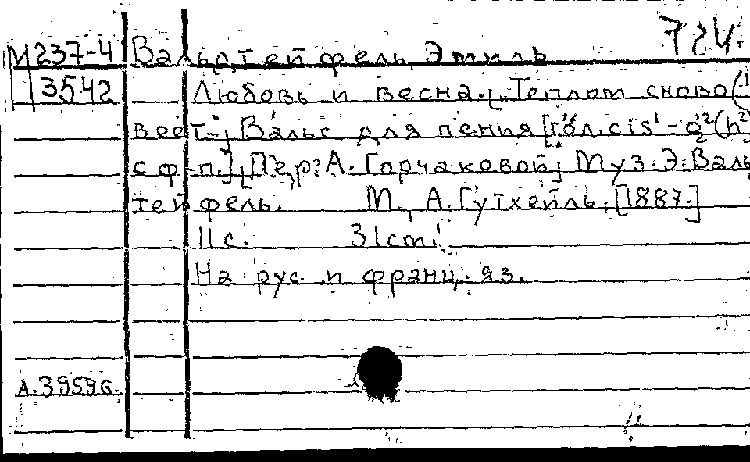 724.
М237-4 Вальдтейфель, Эмиль
3542 Любовь и весна. [„Теплом снова
веет"]. Вальс для пения [гол. cis¹-a²(h²)
с ф-п.]. [Пер.: А. Горчаковой] Муз. Э. Валь
тейфель. М., А. Гутхейль, [1887.]
11с. 31cm.
На рус и франц. яз.
А.39596.